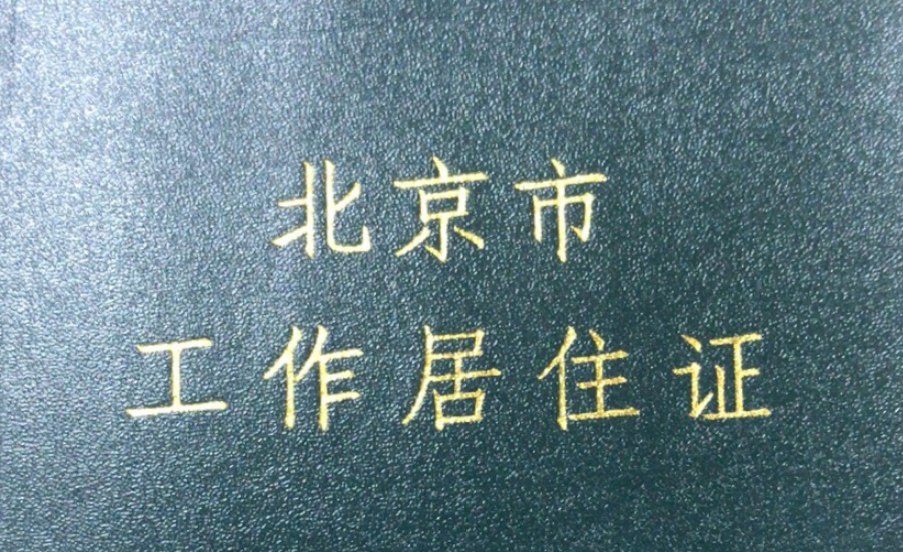 北京市
工作居住证